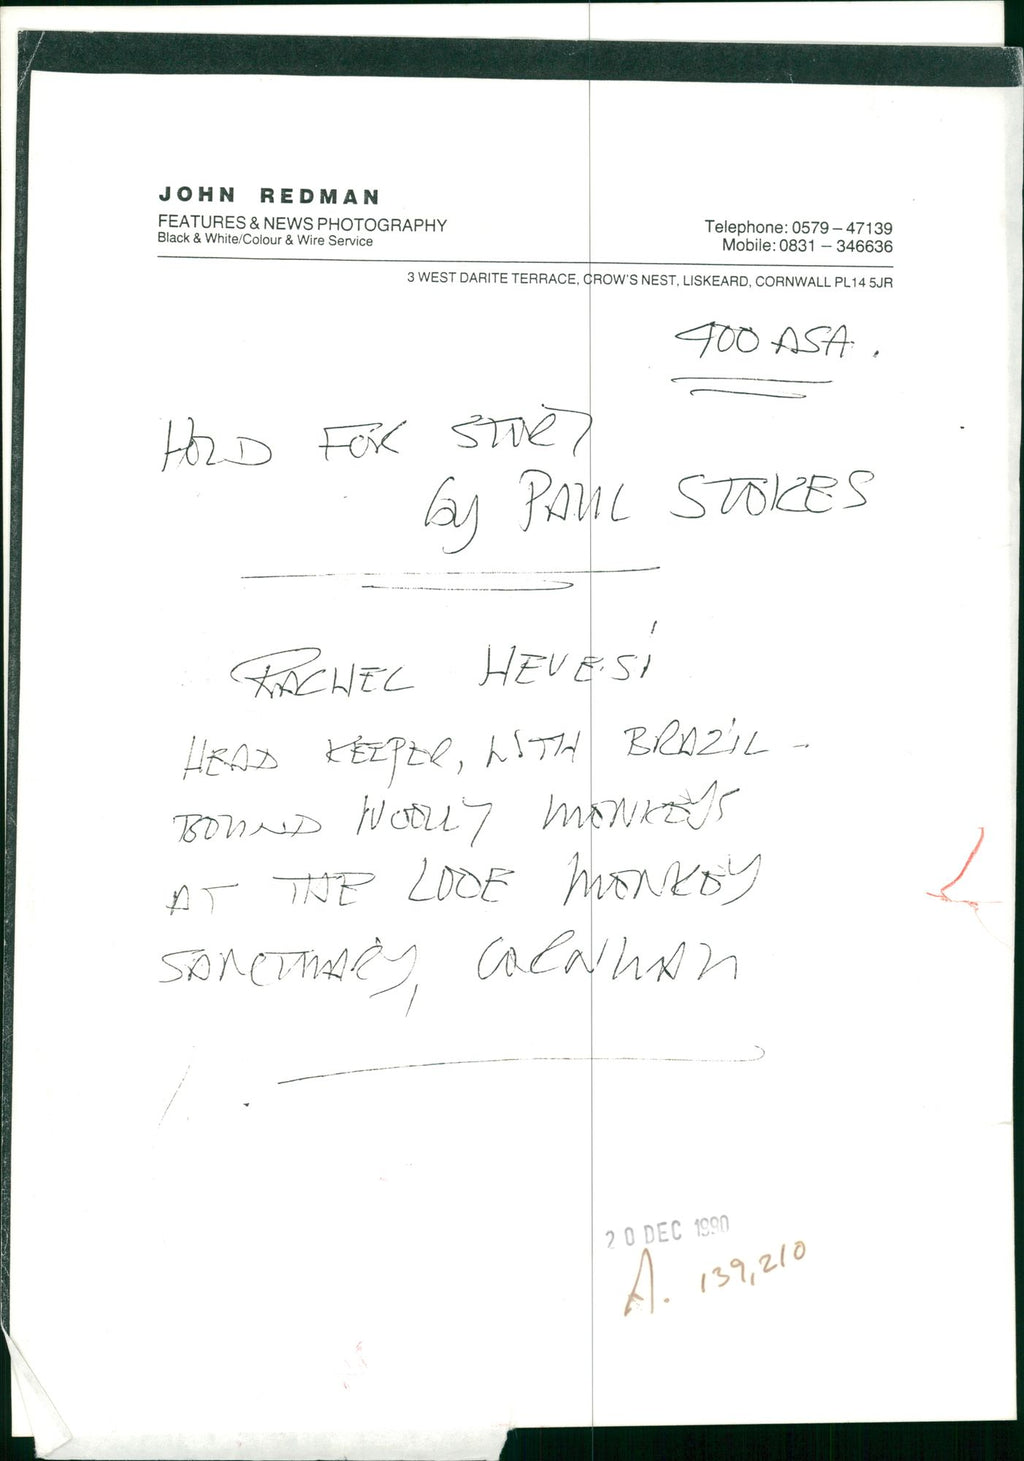 JOHN REDMAN
FEATURES & NEWS PHOTOGRAPHY
Black & White/Colour & Wire Service
Telephone: 0579 – 47139
Mobile: 0831 – 346636
3 WEST DARITE TERRACE, CROW'S NEST, LISKEARD, CORNWALL PL14 5JR
400 ASA.
HOLD FOR STORY
by PAUL STOKES
RACHEL HEVESI
HEAD KEEPER, WITH BRAZIL -
BOUND WOOLLY MONKEYS
AT THE LOOE MONKEY
SANCTUARY, CORNWALL
20 DEC 1990
A. 139,210